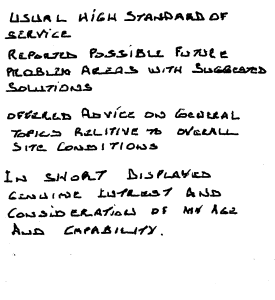 USUAL HIGH STANDARD OF
SERVICE
REPORTED POSSIBLE FUTURE
PROBLEM AREAS WITH SUGGESTED
SOLUTIONS
OFFERED ADVICE ON GENERAL
TOPICS RELITIVE TO OVERALL
SITE CONDITIONS
IN SHORT DISPLAYED
GENUINE INTREST AND
CONSIDERATION OF MY AGE
AND CAPABILITY.